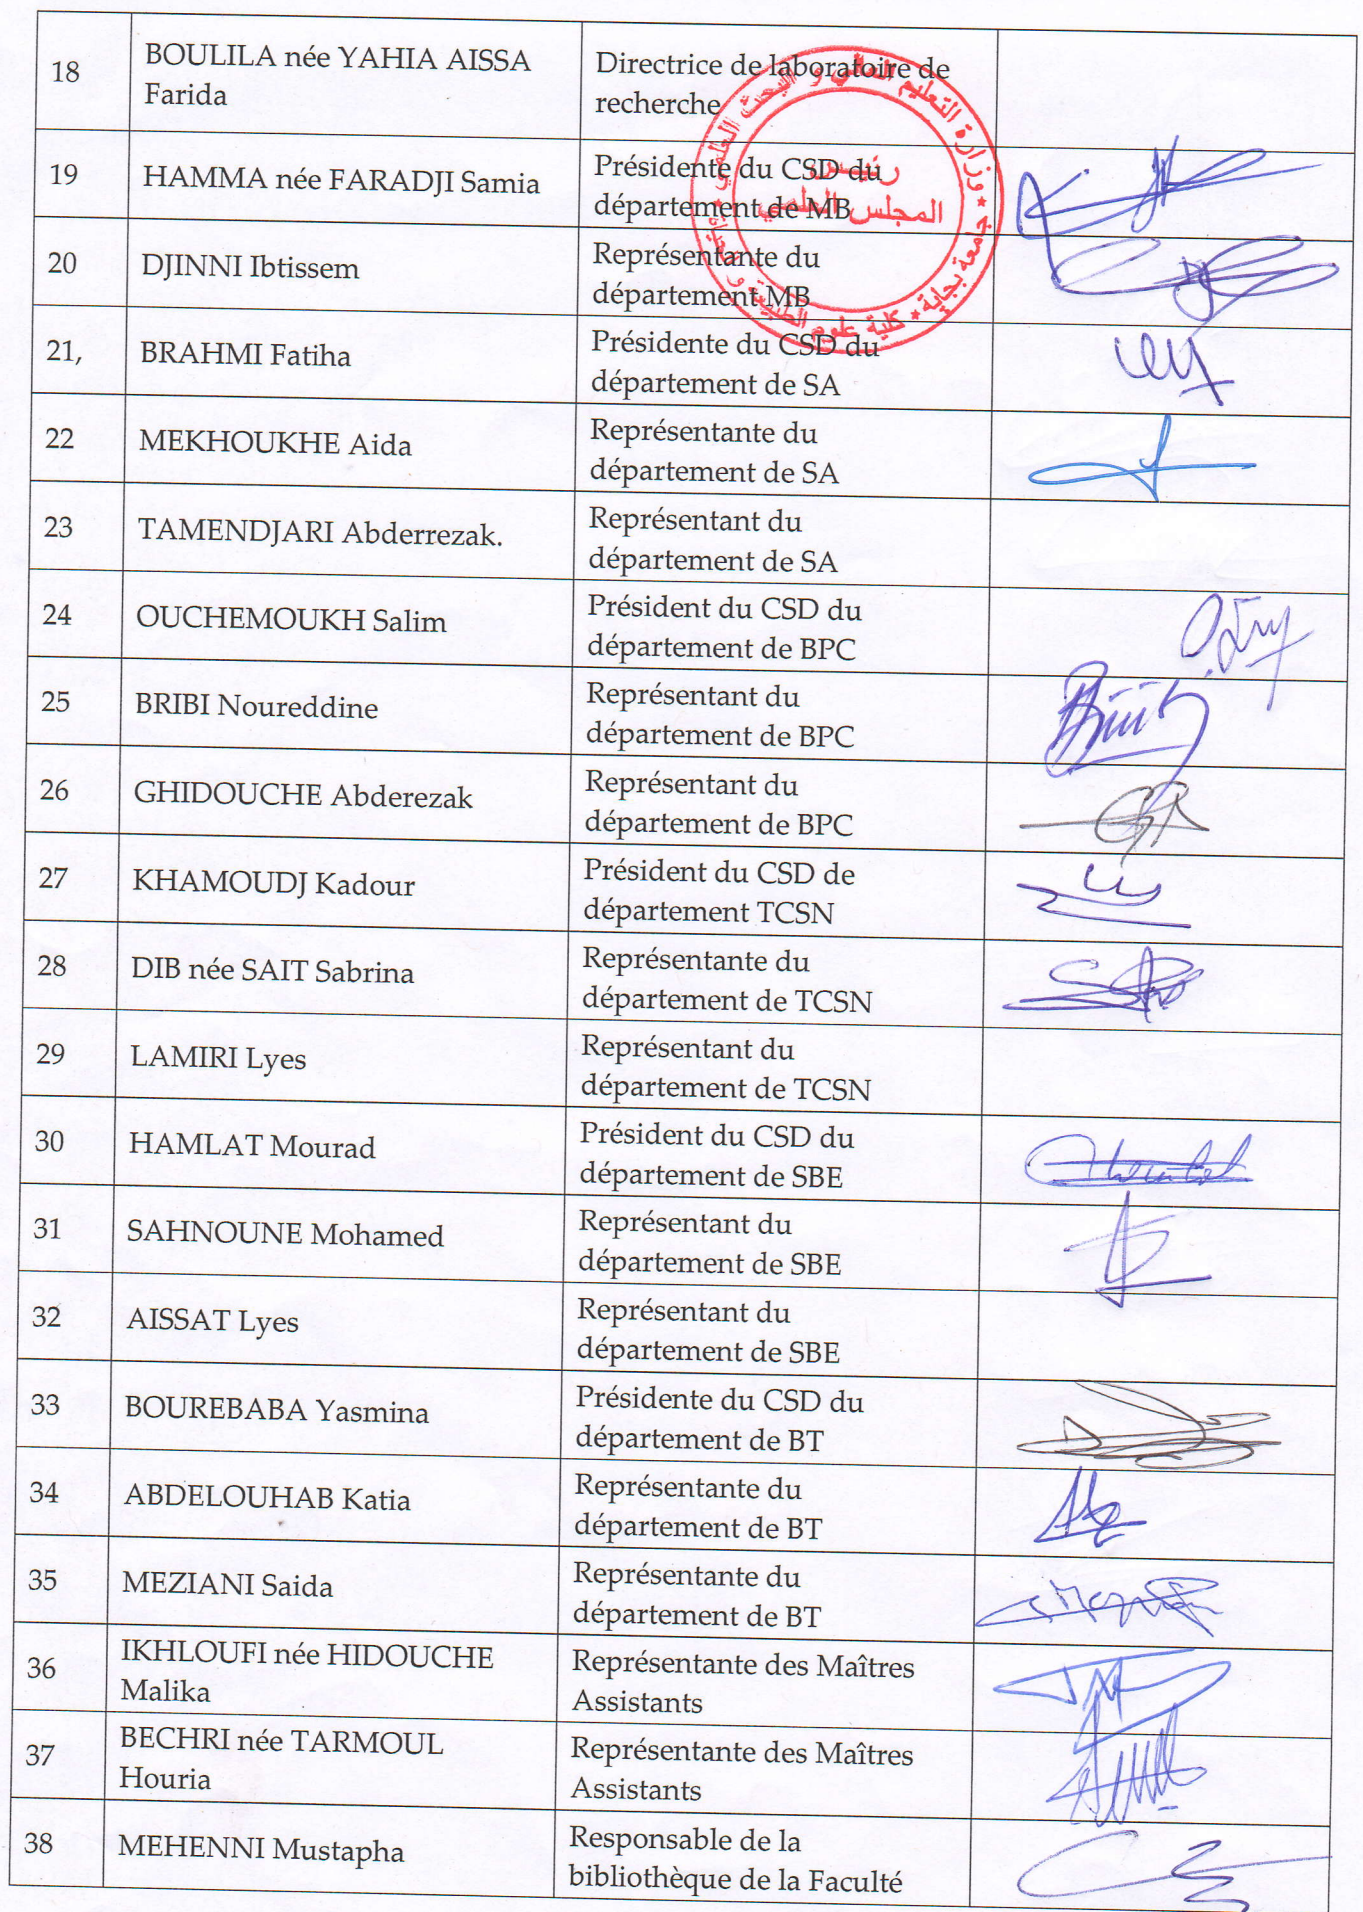 18
BOULILA née YAHIA AISSA
Farida
Directrice de laboratoire de
recherche
19
HAMMA née FARADJI Samia
Présidente du CSD du
département de MB
20
DJINNI Ibtissem
Représentante du
département MB
21,
BRAHMI Fatiha
Présidente du CSD du
département de SA
22
MEKHOUKHE Aida
Représentante du
département de SA
23
TAMENDJARI Abderrezak.
Représentant du
département de SA
24
OUCHEMOUKH Salim
Président du CSD du
département de BPC
25
BRIBI Noureddine
Représentant du
département de BPC
26
GHIDOUCHE Abderezak
Représentant du
département de BPC
27
KHAMOUDJ Kadour
Président du CSD de
département TCSN
28
DIB née SAIT Sabrina
Représentante du
département de TCSN
29
LAMIRI Lyes
Représentant du
département de TCSN
30
HAMLAT Mourad
Président du CSD du
département de SBE
31
SAHNOUNE Mohamed
Représentant du
département de SBE
32
AISSAT Lyes
Représentant du
département de SBE
33
BOUREBABA Yasmina
Présidente du CSD du
département de BT
34
ABDELOUHAB Katia
Représentante du
département de BT
35
MEZIANI Saida
Représentante du
département de BT
36
IKHLOUFI née HIDOUCHE
Malika
Représentante des Maîtres
Assistants
37
BECHRI née TARMOUL
Houria
Représentante des Maîtres
Assistants
38
MEHENNI Mustapha
Responsable de la
bibliothèque de la Faculté
وزارة التعليم العالي و البحث العلمي
جامعة بجاية * كلية علوم الطبيعة و الحياة
رئيس
المجلس العلمي